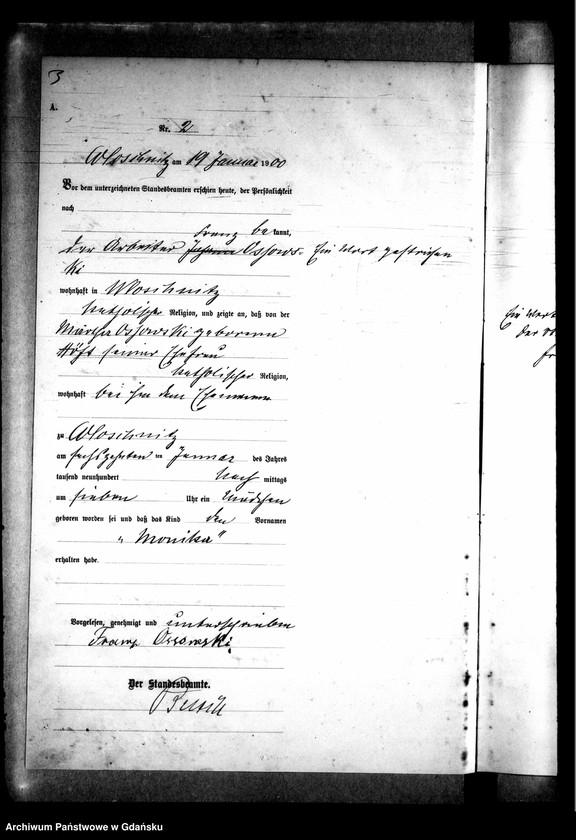 3
A.
Nr. 2
Wloschnitz am 19 Januar 1900
Vor dem unterzeichneten Standesbeamten erschien heute, der Persönlichkeit
nach
Franz bekannt,
der Arbeiter Johann Ossows- Ein Wort gestrichen
ki
wohnhaft in Wloschnitz
katholischer Religion, und zeigte an, daß von der
Martha Ossowski geborenen
Höft seiner Ehefrau
katholischer Religion,
wohnhaft bei ihm dem Ehemann
zu Wloschnitz
am sechszehnten ten Januar des Jahres
tausend neunhundert Nach mittags
um sieben Uhr ein Mädchen
geboren worden sei und daß das Kind den Vornamen
„Monika"
erhalten habe.
Vorgelesen, genehmigt und unterschrieben
Franz Ossowski
Der Standesbeamte.
Ein Wort
der
Archiwum Państwowe w Gdańsku